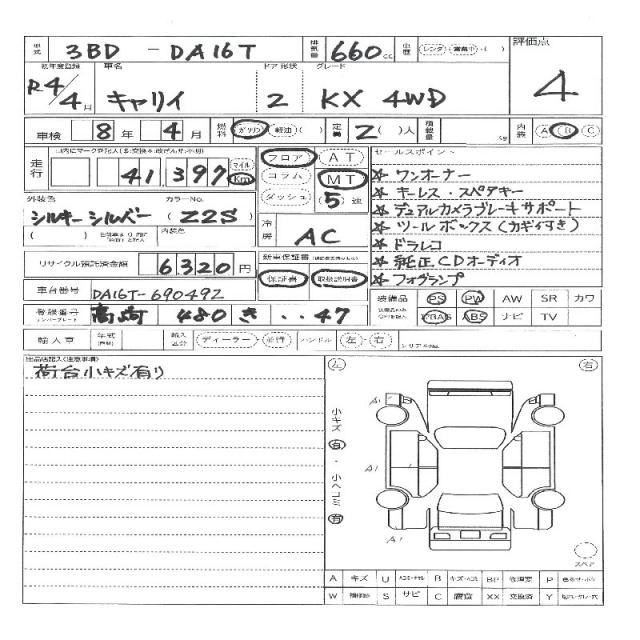 型式 3BD - DA16T 排気量 660 cc 車歴 レンタ・営業中・( ) 評価点
初年度登録 車名 ドア 形状 グレード
R4/4月 キャリイ 2 KX 4WD 4
車検 8年 4月 燃料 ガソリン 軽油( ) 定員 2( )人 積載量 Kg 内装 A B C
走行 41,397 マイル Km フロア AT セールスポイント
コラム MT ☆ ワンオーナー
ダッシュ 5速 ☆ キーレス・スペアキー
外装色 カラーNo. ☆ デュアルカメラブレーキサポート
シルキーシルバー (Z2S) 冷房 AC ☆ ツールボックス(カギ付き)
( ) 内装色 ☆ ドラレコ
リサイクル預託済金額 6320円 新車保証書 ☆ 純正CDオーディオ
保証書 取扱説明書 ☆ フォグランプ
車台番号 DA16T-690492 装備品 PS PW AW SR カワ
登録番号 高崎 480 き ・・47 ABS ナビ TV
輸入車 年式 輸入区分 ディーラー・並行 ハンドル 左・右 シリアルNo.
出品店記入(注意事項)
荷台小キズ有り
左 右
小キズ 有・小ヘコミ 有
A1
A1
A1
スペア
A キズ U B キズ・ヘコミ BP 修理歴 P
W S サビ C 腐食 XX 交換済 Y